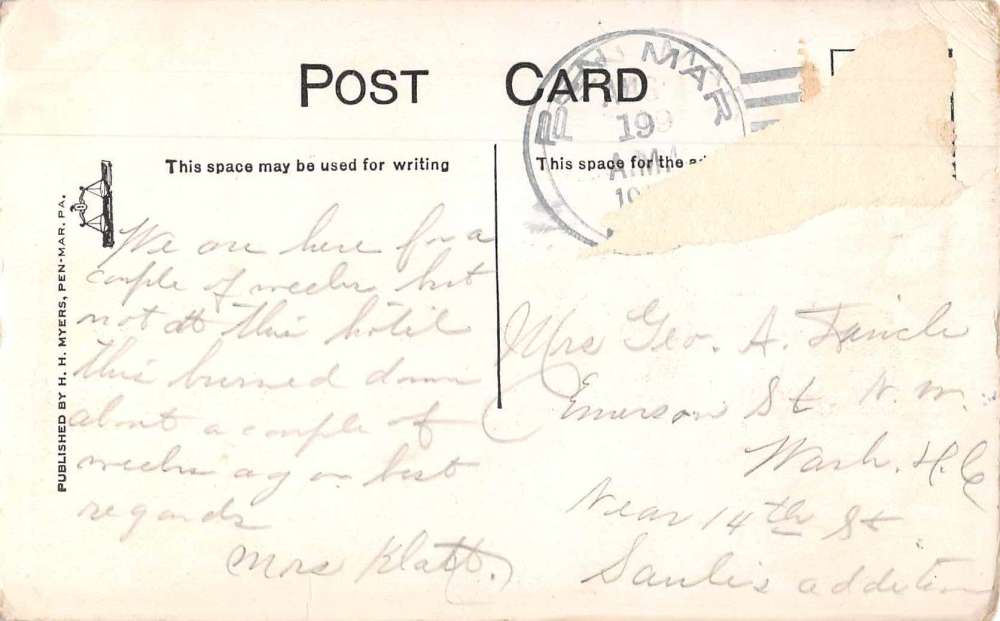 POST CARD
PEN MAR
199
A.M.
This space may be used for writing
This space for the
PUBLISHED BY H. H. MYERS, PEN-MAR, PA.
We are here for a
couple of weeks but
not at this hotil
this burned down
about a couple of
weeks ago best
regards
Mrs Klatt.
Mrs Geo. A.
Emerson St. N. W.
Wash. D.C
Near 14th St
Saul's addition